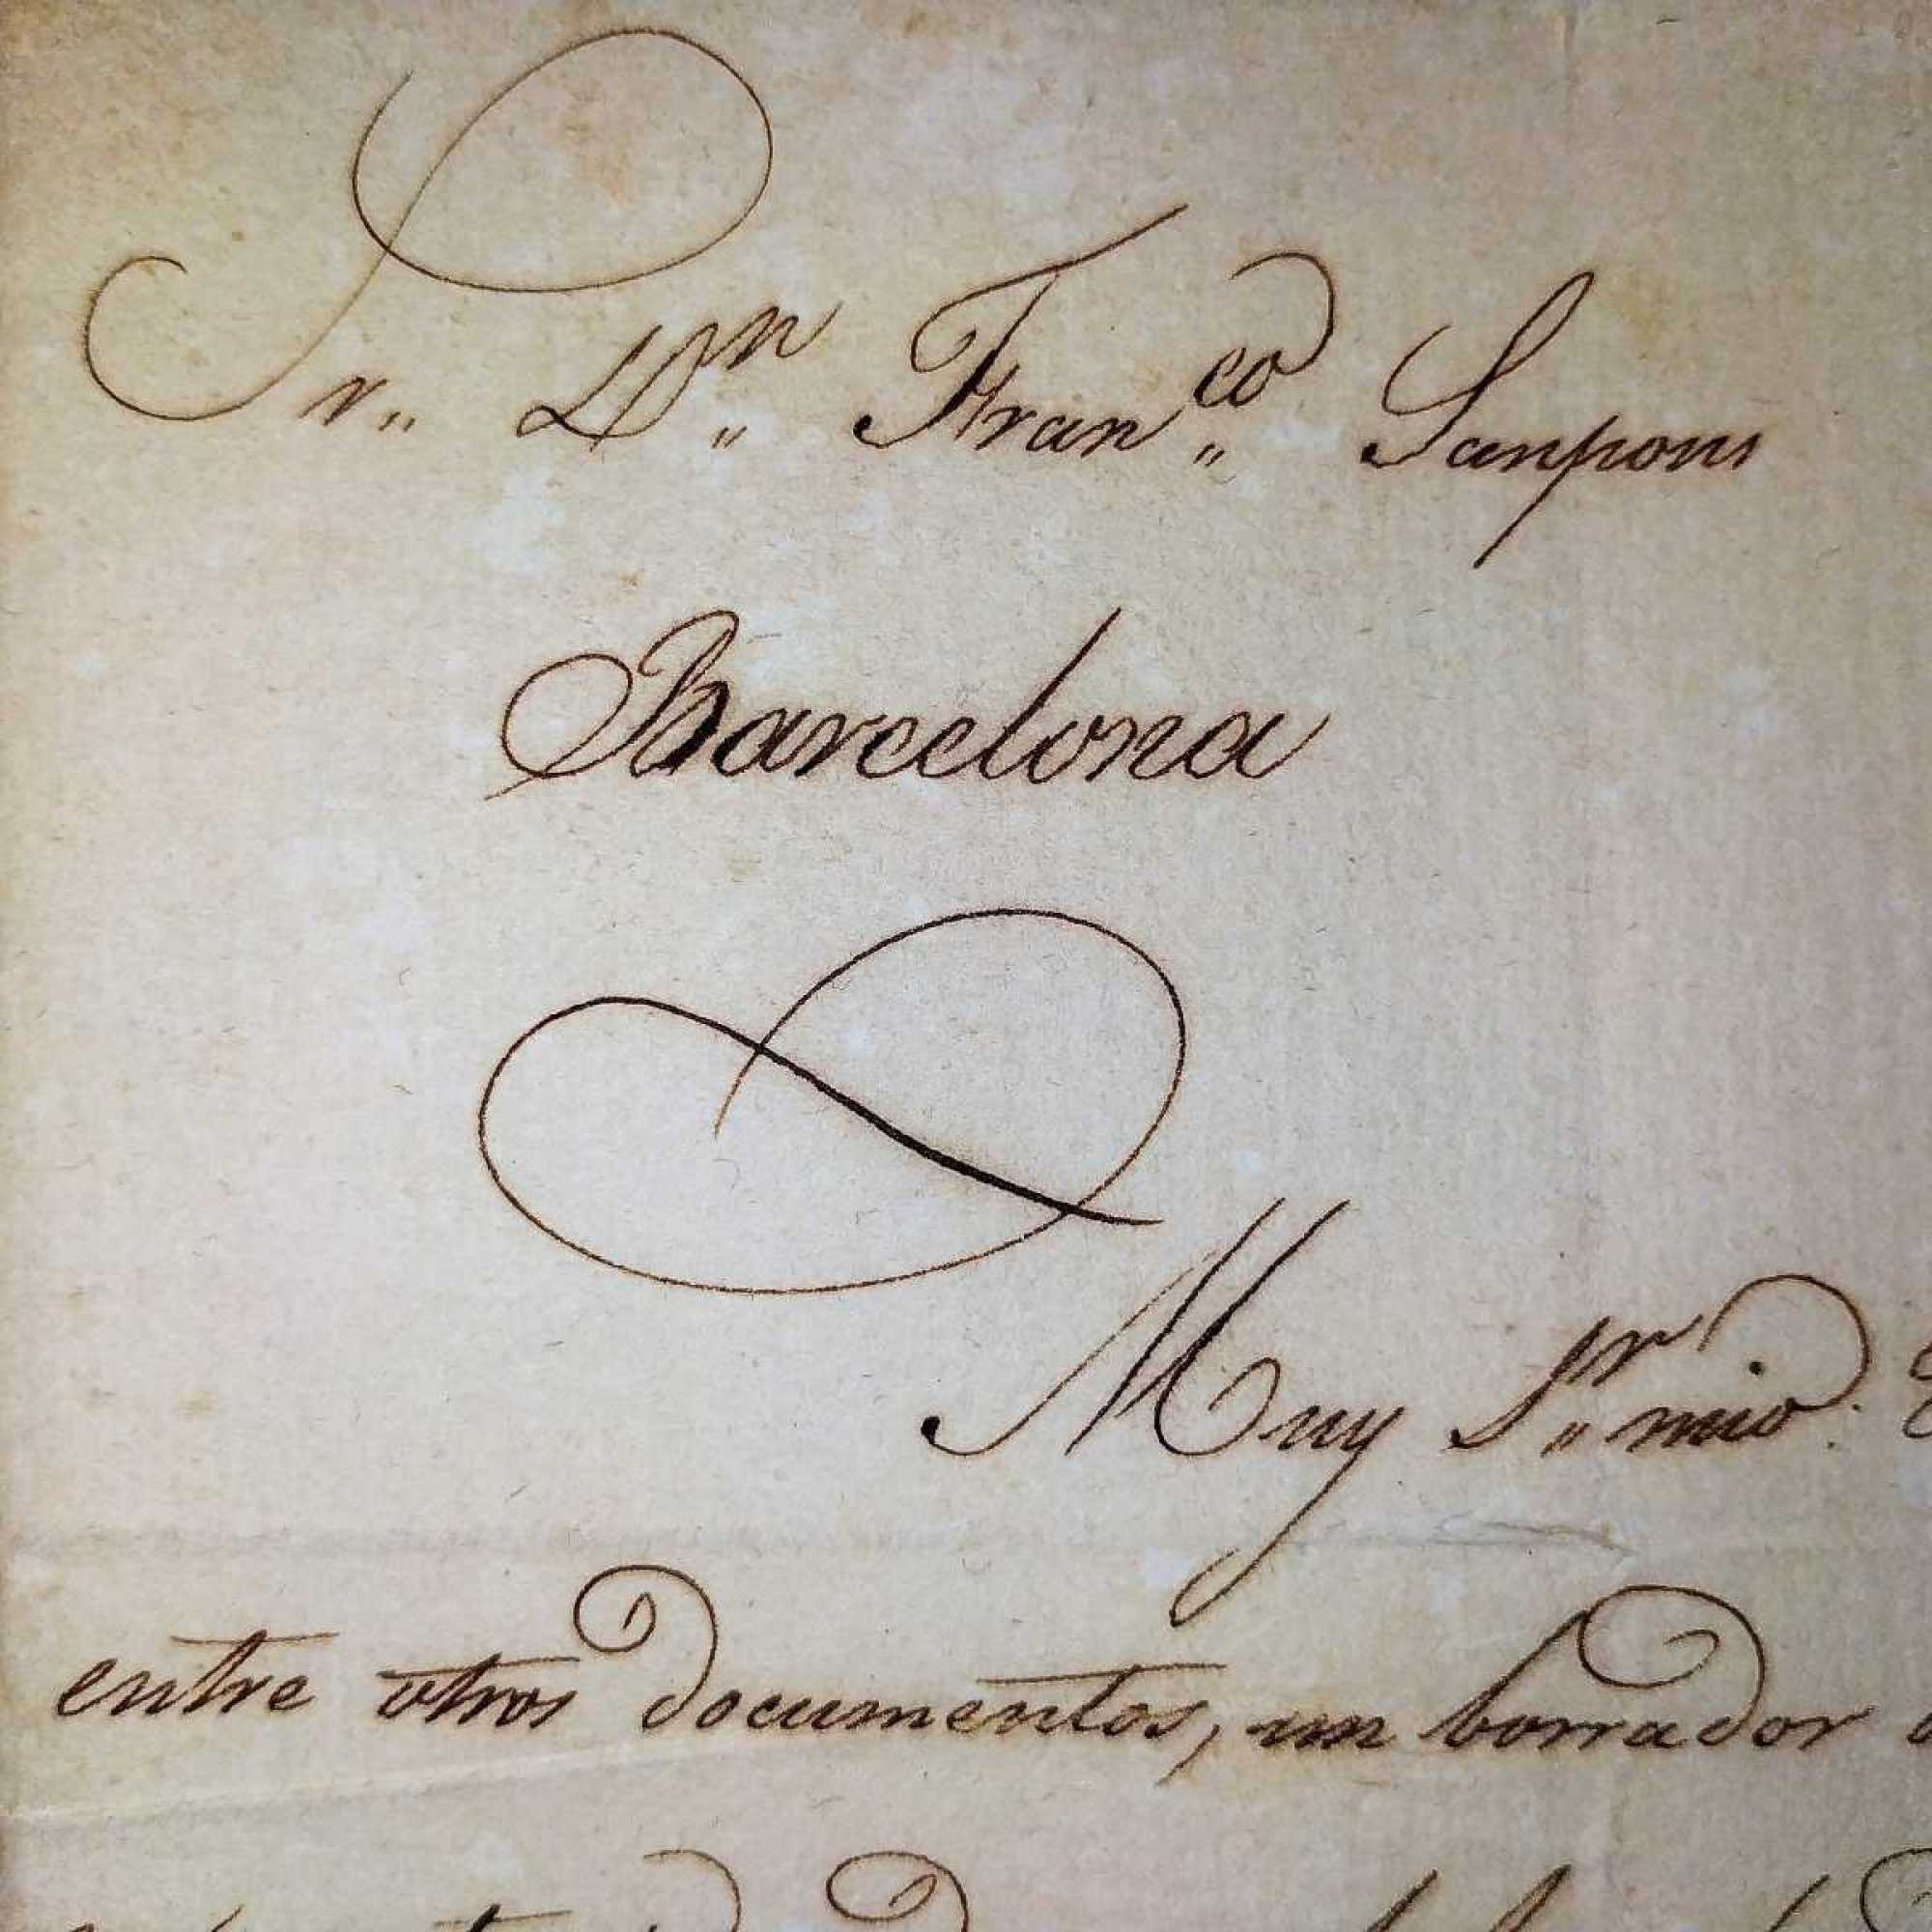 Sr. Dn. Franco. Sanpons
Barcelona
Muy Sr. mio.
entre otros documentos, un borrador